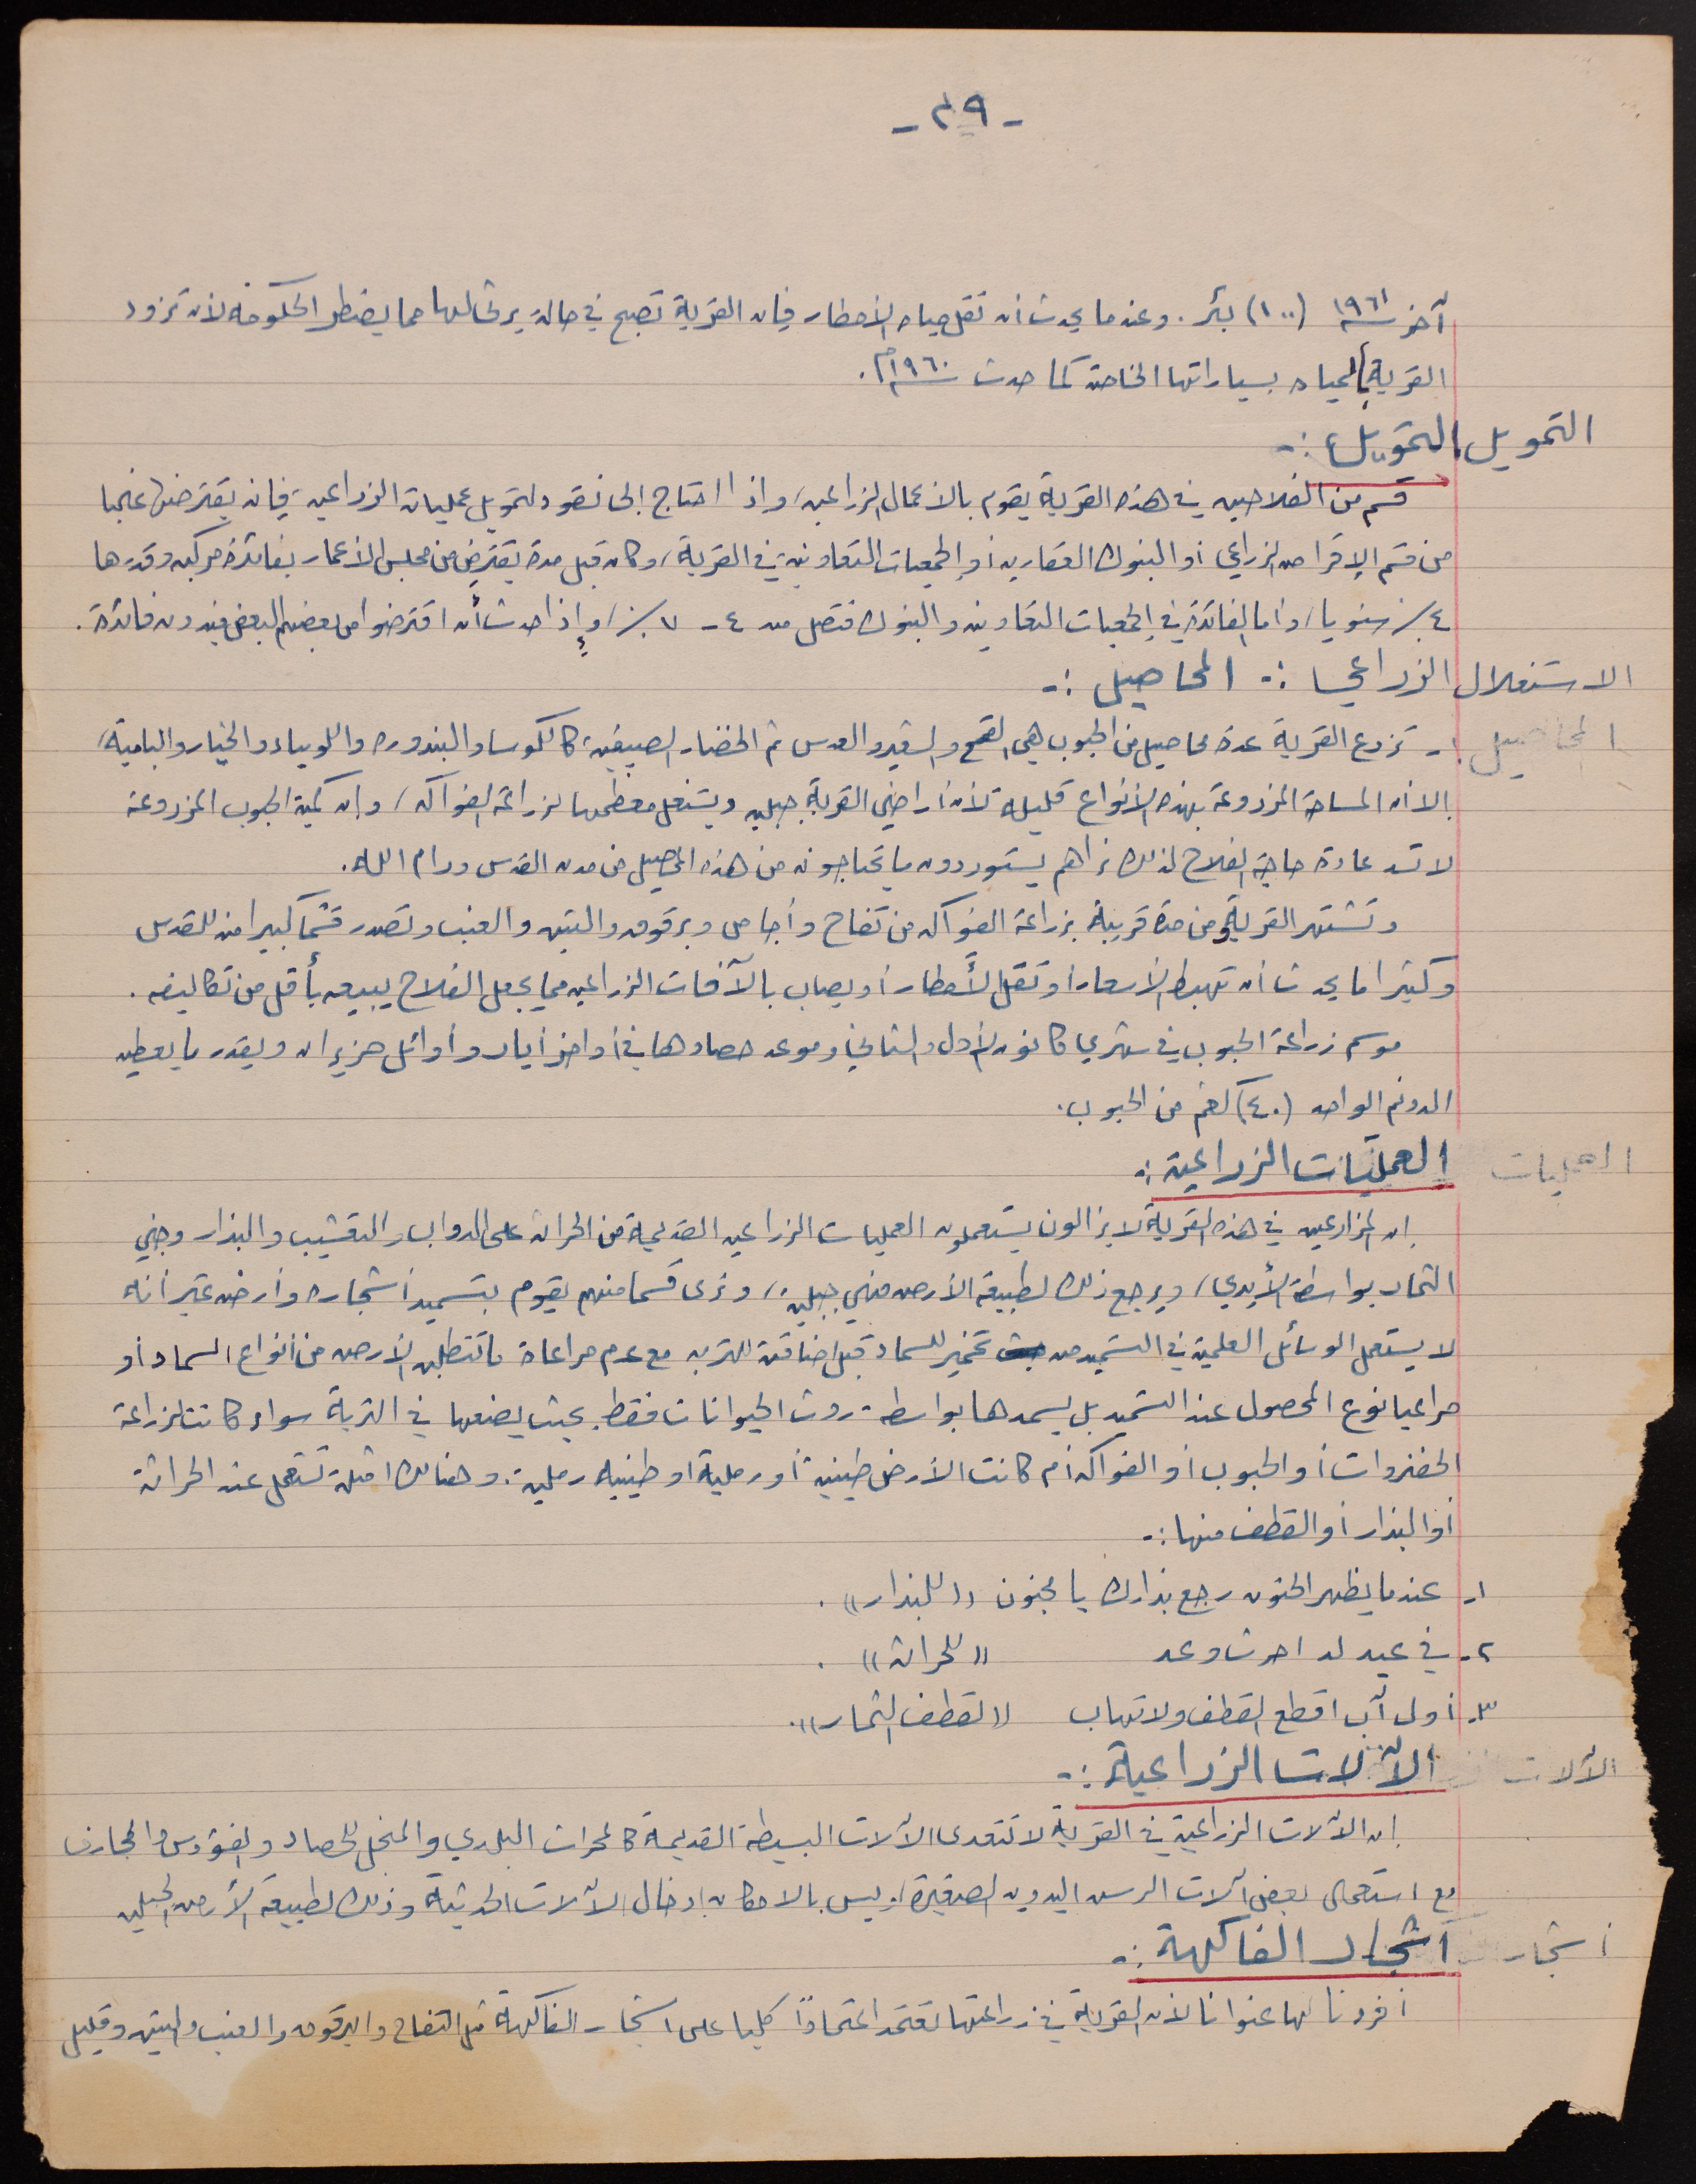 - ٢٩ -
آخر سنة ١٩٦١ (١٠٠) بئر. وعندما يحدث أن تقل مياه الأمطار فإن القرية تصبح في حالة يرثى لها مما يضطر الحكومة لأن تزود
القرية بالمياه بسياراتها الخاصة كما حدث سنة ١٩٦٠م.
التمويل التمويل :-
قسم من الفلاحين في هذه القرية يقوم بالأعمال الزراعية، واذا احتاج إلى نقود لتمويل عمليات الزراعية، فإنه يقترضها غالبا
من قسم الإقراض الزراعي أو البنوك العقارية أو الجمعيات التعاونية في القرية، وكان قبل مدة يقترض من مجلس الأعمار بفائدة مركبه وقدرها
٤٪ سنويا، وأما الفائدة في الجمعيات التعاونيه والبنوك فتصل من ٤ - ٧٪، وإذا حدث أن اقترضوا من بعضهم البعض فبدون فائدة.
الاستغلال الزراعي :- المحاصيل :-
المحاصيل - تزرع القرية عدة محاصيل من الحبوب هي القمح والشعير والعدس ثم الخضار الصيفية، كالكوسا والبندوره واللوبياء والخيار والبامية،
إلا أن المساحة المزروعة بهذه الأنواع قليلة لأن أراضي القرية جبليه ويستغل معظمها لزراعة الفواكه، وإن كمية الحبوب المزروعة
لا تسد عادة حاجة الفلاح لذلك نراهم يستوردون ما يحتاجونه من هذه المحاصيل من مدن القدس ورام الله.
وتشتهر القرية ومن مدة قريبة بزراعة الفواكه من تفاح وأجاص وبرقوق والتين والعنب وتصدر قسما كبيرا منه للقدس
وكثيرا ما يحدث أن تهبط الأسعار أو تقل الأمطار أو يصاب بالآفات الزراعيه مما يجعل الفلاح يبيعه بأقل من تكاليفه.
موسم زراعة الحبوب في شهري كانون الأول والثاني وموعد حصادها في أواخر أيار وأوائل حزيران ويقدر ما يعطيه
الدونم الواحد (٤٠) كغم من الحبوب.
العمليات العمليات الزراعية :-
إن المزارعين في هذه القرية لا يزالون يستعملون العمليات الزراعيه القديمة من الحراثه على الدواب والتعشيب والبذار وجني
الثمار بواسطة الأيدي، ويرجع ذلك لطبيعة الأرض فهي جبلية، ونرى قسما منهم يقوم بتسميد أشجاره وأرضه غير أنه
لا يستعمل الوسائل العلمية في التسميد من تخمير للسماد قبل اضافته للتربه مع عدم مراعاة ما تتطلبه الأرض من أنواع السماد أو
مراعيا نوع المحصول عند التسميد بل يسمدها بواسطة روث الحيوانات فقط. بحيث يضعها في التربة سواء كانت لزراعة
الخضروات أو الحبوب أو الفواكه أم كانت الأرض طينية أو رملية أو طينيه رملية. وهنالك امثلة تستعمل عند الحراثة
أو البذار أو القطف منها :-
١- عندما يظهر الحنون رجع بذارك يا مجنون ((للبذار)).
٢- في عيد لد احرث وعد ((للحراثة)).
٣- أول آب اقطع القطف ولا تهاب ((لقطف الثمار)).
الآلات الآلات الزراعية :-
إن الآلات الزراعية في القرية لا تتعدى الآلات البسيطة القديمة كالمحراث البلدي والمنجل للحصاد والفؤوس والمجارف
مع استعمال بعض آلات الرش اليدوية الصغيرة، وليس بالامكان إدخال الآلات الحديثة وذلك لطبيعة الأرض الجبليه
أشجار أشجار الفاكهة :-
أفردنا لها عنوانا لأن القرية في زراعتها تعتمد اعتمادًا كليا على اشجار الفاكهة مثل التفاح والبرقوق والعنب والتين وقليل